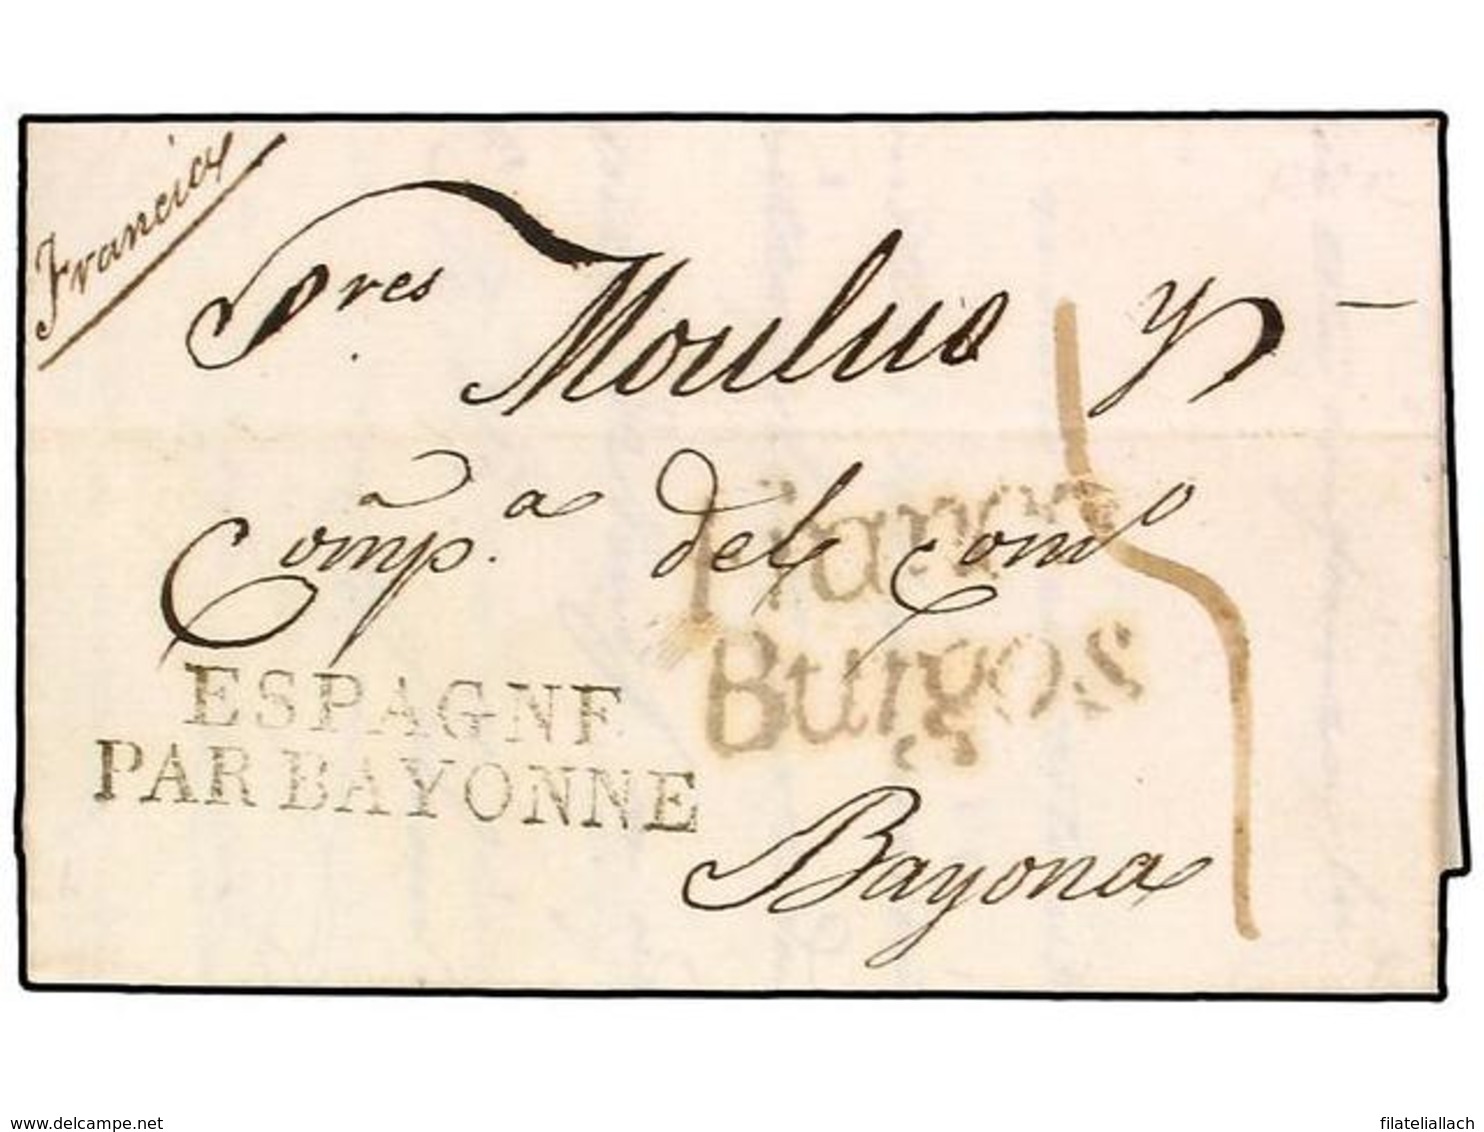 Francia
Sres Moulus y
Comp.a del Como
Franco
Burgos
ESPAGNE
PAR BAYONNE
Bayona
delcampe.net
filateliallach